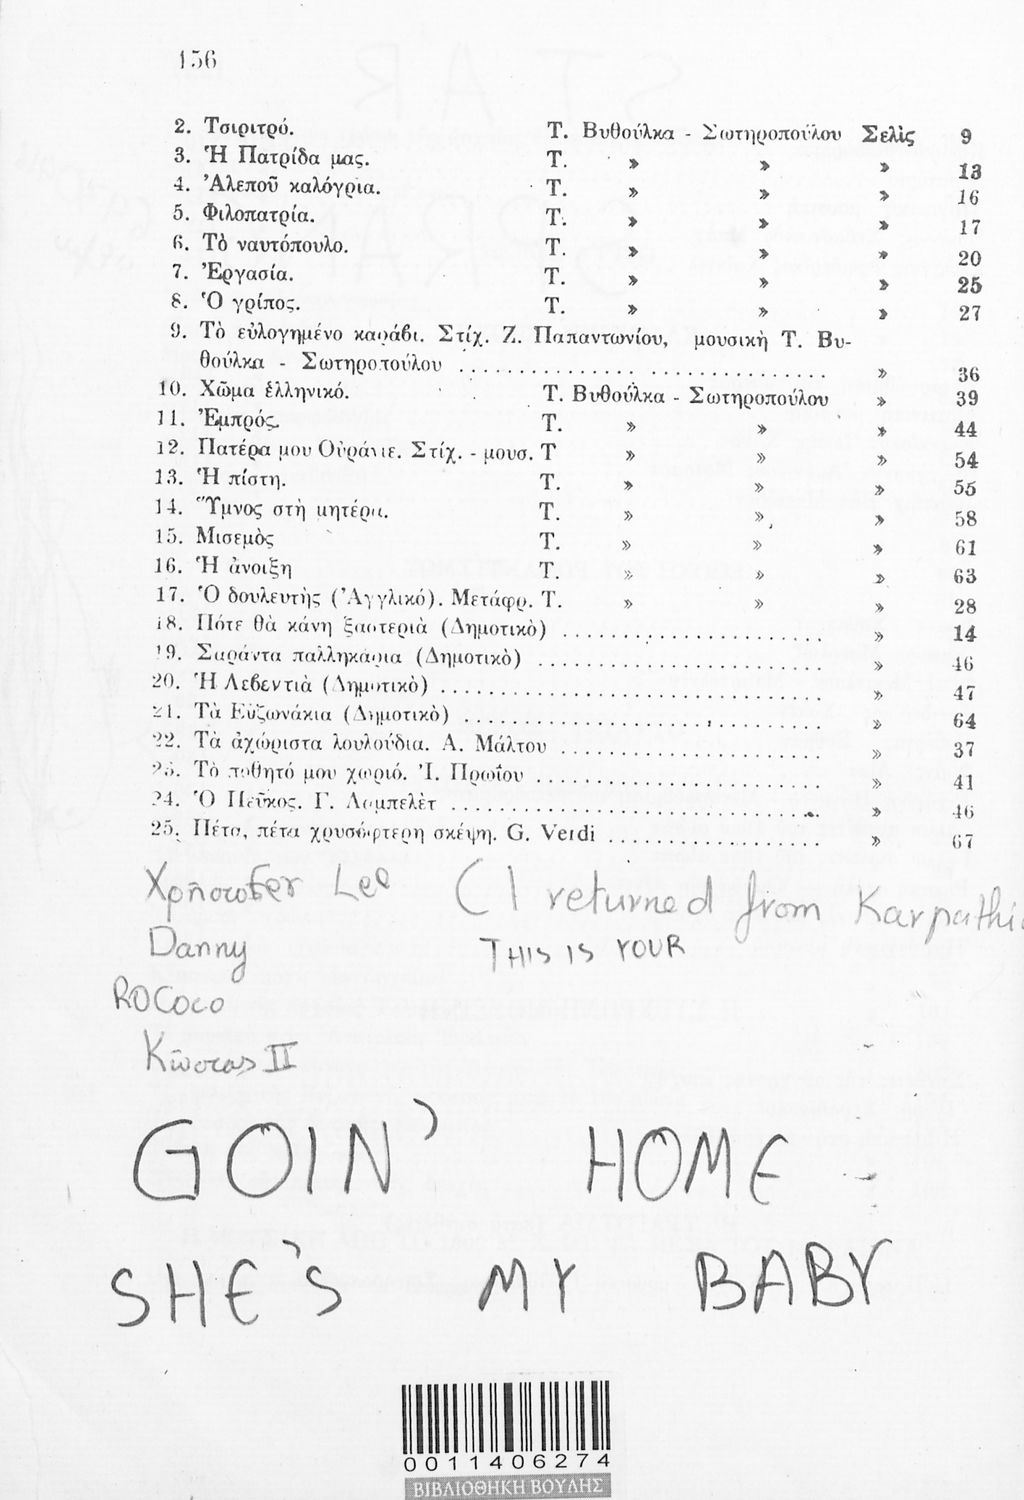 156
2. Τσιριτρό. Τ. Βυθούλκα - Σωτηροπούλου Σελὶς 9
3. Ἡ Πατρίδα μας. Τ. » » » 13
4. Ἀλεποῦ καλόγρια. Τ. » » » 16
5. Φιλοπατρία. Τ. » » » 17
6. Τὸ ναυτόπουλο. Τ. » » » 20
7. Ἐργασία. Τ. » » » 25
8. Ὁ γρίπος. Τ. » » » 27
9. Τὸ εὐλογημένο καράβι. Στίχ. Ζ. Παπαντωνίου, μουσικὴ Τ. Βυ-
θούλκα - Σωτηροπούλου .......... » 36
10. Χῶμα ἑλληνικό. Τ. Βυθούλκα - Σωτηροπούλου » 39
11. Ἐμπρός. Τ. » » » 44
12. Πατέρα μου Οὐράνιε. Στίχ. - μουσ. Τ » » » 54
13. Ἡ πίστη. Τ. » » » 55
14. Ὕμνος στὴ μητέρα. Τ. » » » 58
15. Μισεμὸς Τ. » » » 61
16. Ἡ ἀνοιξη Τ. » » » 63
17. Ὁ δουλευτὴς (Ἀγγλικό). Μετάφρ. Τ. » » » 28
18. Πότε θὰ κάνη ξαστεριὰ (Δημοτικὸ) .......... » 14
19. Σαράντα παλληκάρια (Δημοτικὸ) .......... » 46
20. Ἡ Λεβεντιὰ (Δημοτικὸ) .......... » 47
21. Τὰ Εὐζωνάκια (Δημοτικὸ) .......... » 64
22. Τὰ ἀχώριστα λουλούδια. Α. Μάλτου .......... » 37
23. Τὸ ποθητό μου χωριό. Ἰ. Πρωΐου .......... » 41
24. Ὁ Πεῦκος. Γ. Λαμπελὲτ .......... » 46
25. Πέτα, πέτα χρυσόφτερη σκέψη. G. Verdi .......... » 67
Χρῆστοfer Lee ( I returned from
Danny THIS IS YOUR
ROCOCO
Κώστας II
GOIN' HOME
SHE'S MY BABY
0011406274
ΒΙΒΛΙΟΘΗΚΗ ΒΟΥΛΗΣ